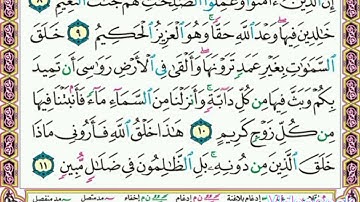 إِنَّ ٱلَّذِينَ ءَامَنُوا۟ وَعَمِلُوا۟ ٱلصَّـٰلِحَـٰتِ لَهُمْ جَنَّـٰتُ ٱلنَّعِيمِ ٨
خَـٰلِدِينَ فِيهَا وَعْدَ ٱللَّهِ حَقًّا وَهُوَ ٱلْعَزِيزُ ٱلْحَكِيمُ ٩ خَلَقَ
ٱلسَّمَـٰوَٰتِ بِغَيْرِ عَمَدٍ تَرَوْنَهَا وَأَلْقَىٰ فِى ٱلْأَرْضِ رَوَٰسِىَ أَن تَمِيدَ
بِكُمْ وَبَثَّ فِيهَا مِن كُلِّ دَآبَّةٍ وَأَنزَلْنَا مِنَ ٱلسَّمَآءِ مَآءً فَأَنۢبَتْنَا فِيهَا
مِن كُلِّ زَوْجٍ كَرِيمٍ ١٠ هَـٰذَا خَلْقُ ٱللَّهِ فَأَرُونِى مَاذَا
خَلَقَ ٱلَّذِينَ مِن دُونِهِۦ بَلِ ٱلظَّـٰلِمُونَ فِى ضَلَـٰلٍ مُّبِينٍ ١١
إدغام بلاغنة مد متصل مد منفصل